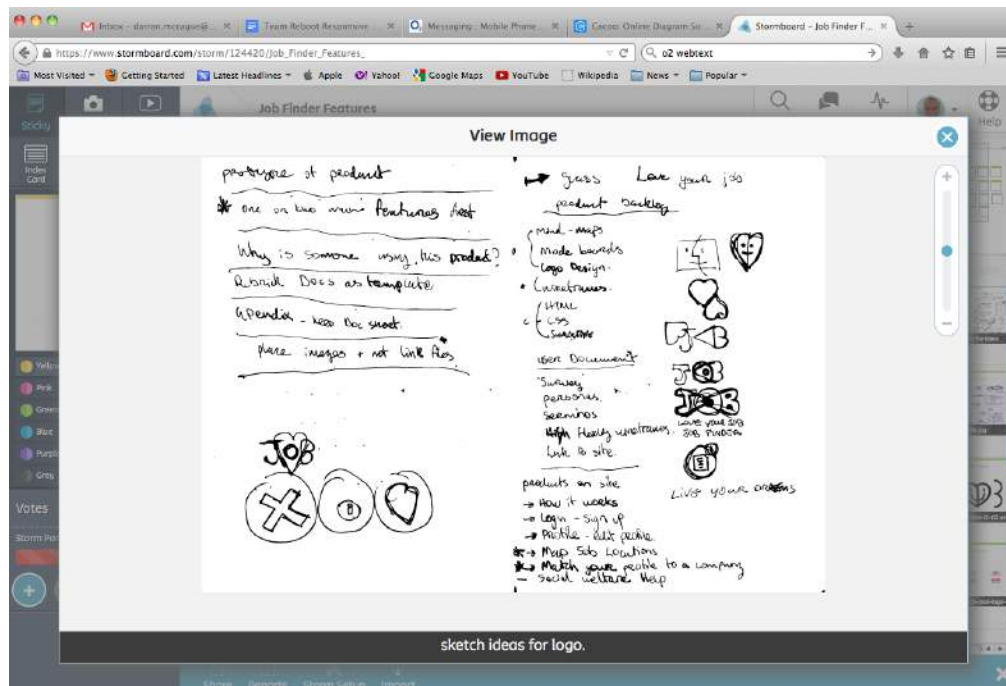 Inbox - darren.mcrague@...
Team Reboot Responsive ...
Messaging : Mobile Phone ...
Cacoo: Online Diagram So...
Stormboard - Job Finder F...
https://www.stormboard.com/storm/124420/Job_Finder_Features_
o2 webtext
Most Visited
Getting Started
Latest Headlines
Apple
Yahoo!
Google Maps
YouTube
Wikipedia
News
Popular
Sticky
Job Finder Features
Help
Index Card
View Image
prototype of product
one or two main features first
Why is someone using this product?
Rubrik Docs as template
Apendix - keep Doc short.
place images + not link files
JOB
X
Love your job
product backlog
mind-maps
mode boards
Logo Design.
wireframes.
HTML
CSS
user Document
Survey
personas.
High Fidelity wireframes.
Link to site.
products on site
How it works
Login - sign up
Profile - edit profile
Map Job Locations
Match your profile to a company
Social welfare Help
JOB
JOB
LOVE YOUR JOB
JOB FINDER
LIVE YOUR DREAMS
Yellow
Pink
Green
Blue
Purple
Grey
Votes
sketch ideas for logo.
Share
Reports
Storm Setup
Import